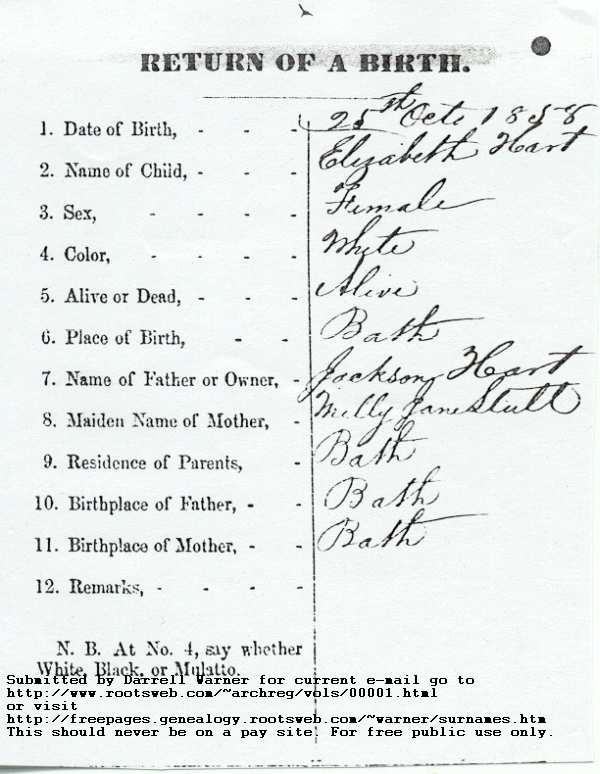 RETURN OF A BIRTH.
1. Date of Birth, - - - 25th Octo 1858
2. Name of Child, - - - Elizabeth Hart
3. Sex, - - - - Female
4. Color, - - - - White
5. Alive or Dead, - - - Alive
6. Place of Birth, - - Bath
7. Name of Father or Owner, - Jackson Hart
8. Maiden Name of Mother, - Milly Jane
9. Residence of Parents, - Bath
10. Birthplace of Father, - - Bath
11. Birthplace of Mother, - - Bath
12. Remarks, - - - -
N. B. At No. 4, say whether
White, Black, or Mulatto.
Submitted by Darrell Warner for current e-mail go to
http://www.rootsweb.com/~archreg/vols/00001.html
or visit
http://freepages.genealogy.rootsweb.com/~warner/surnames.htm
This should never be on a pay site. For free public use only.